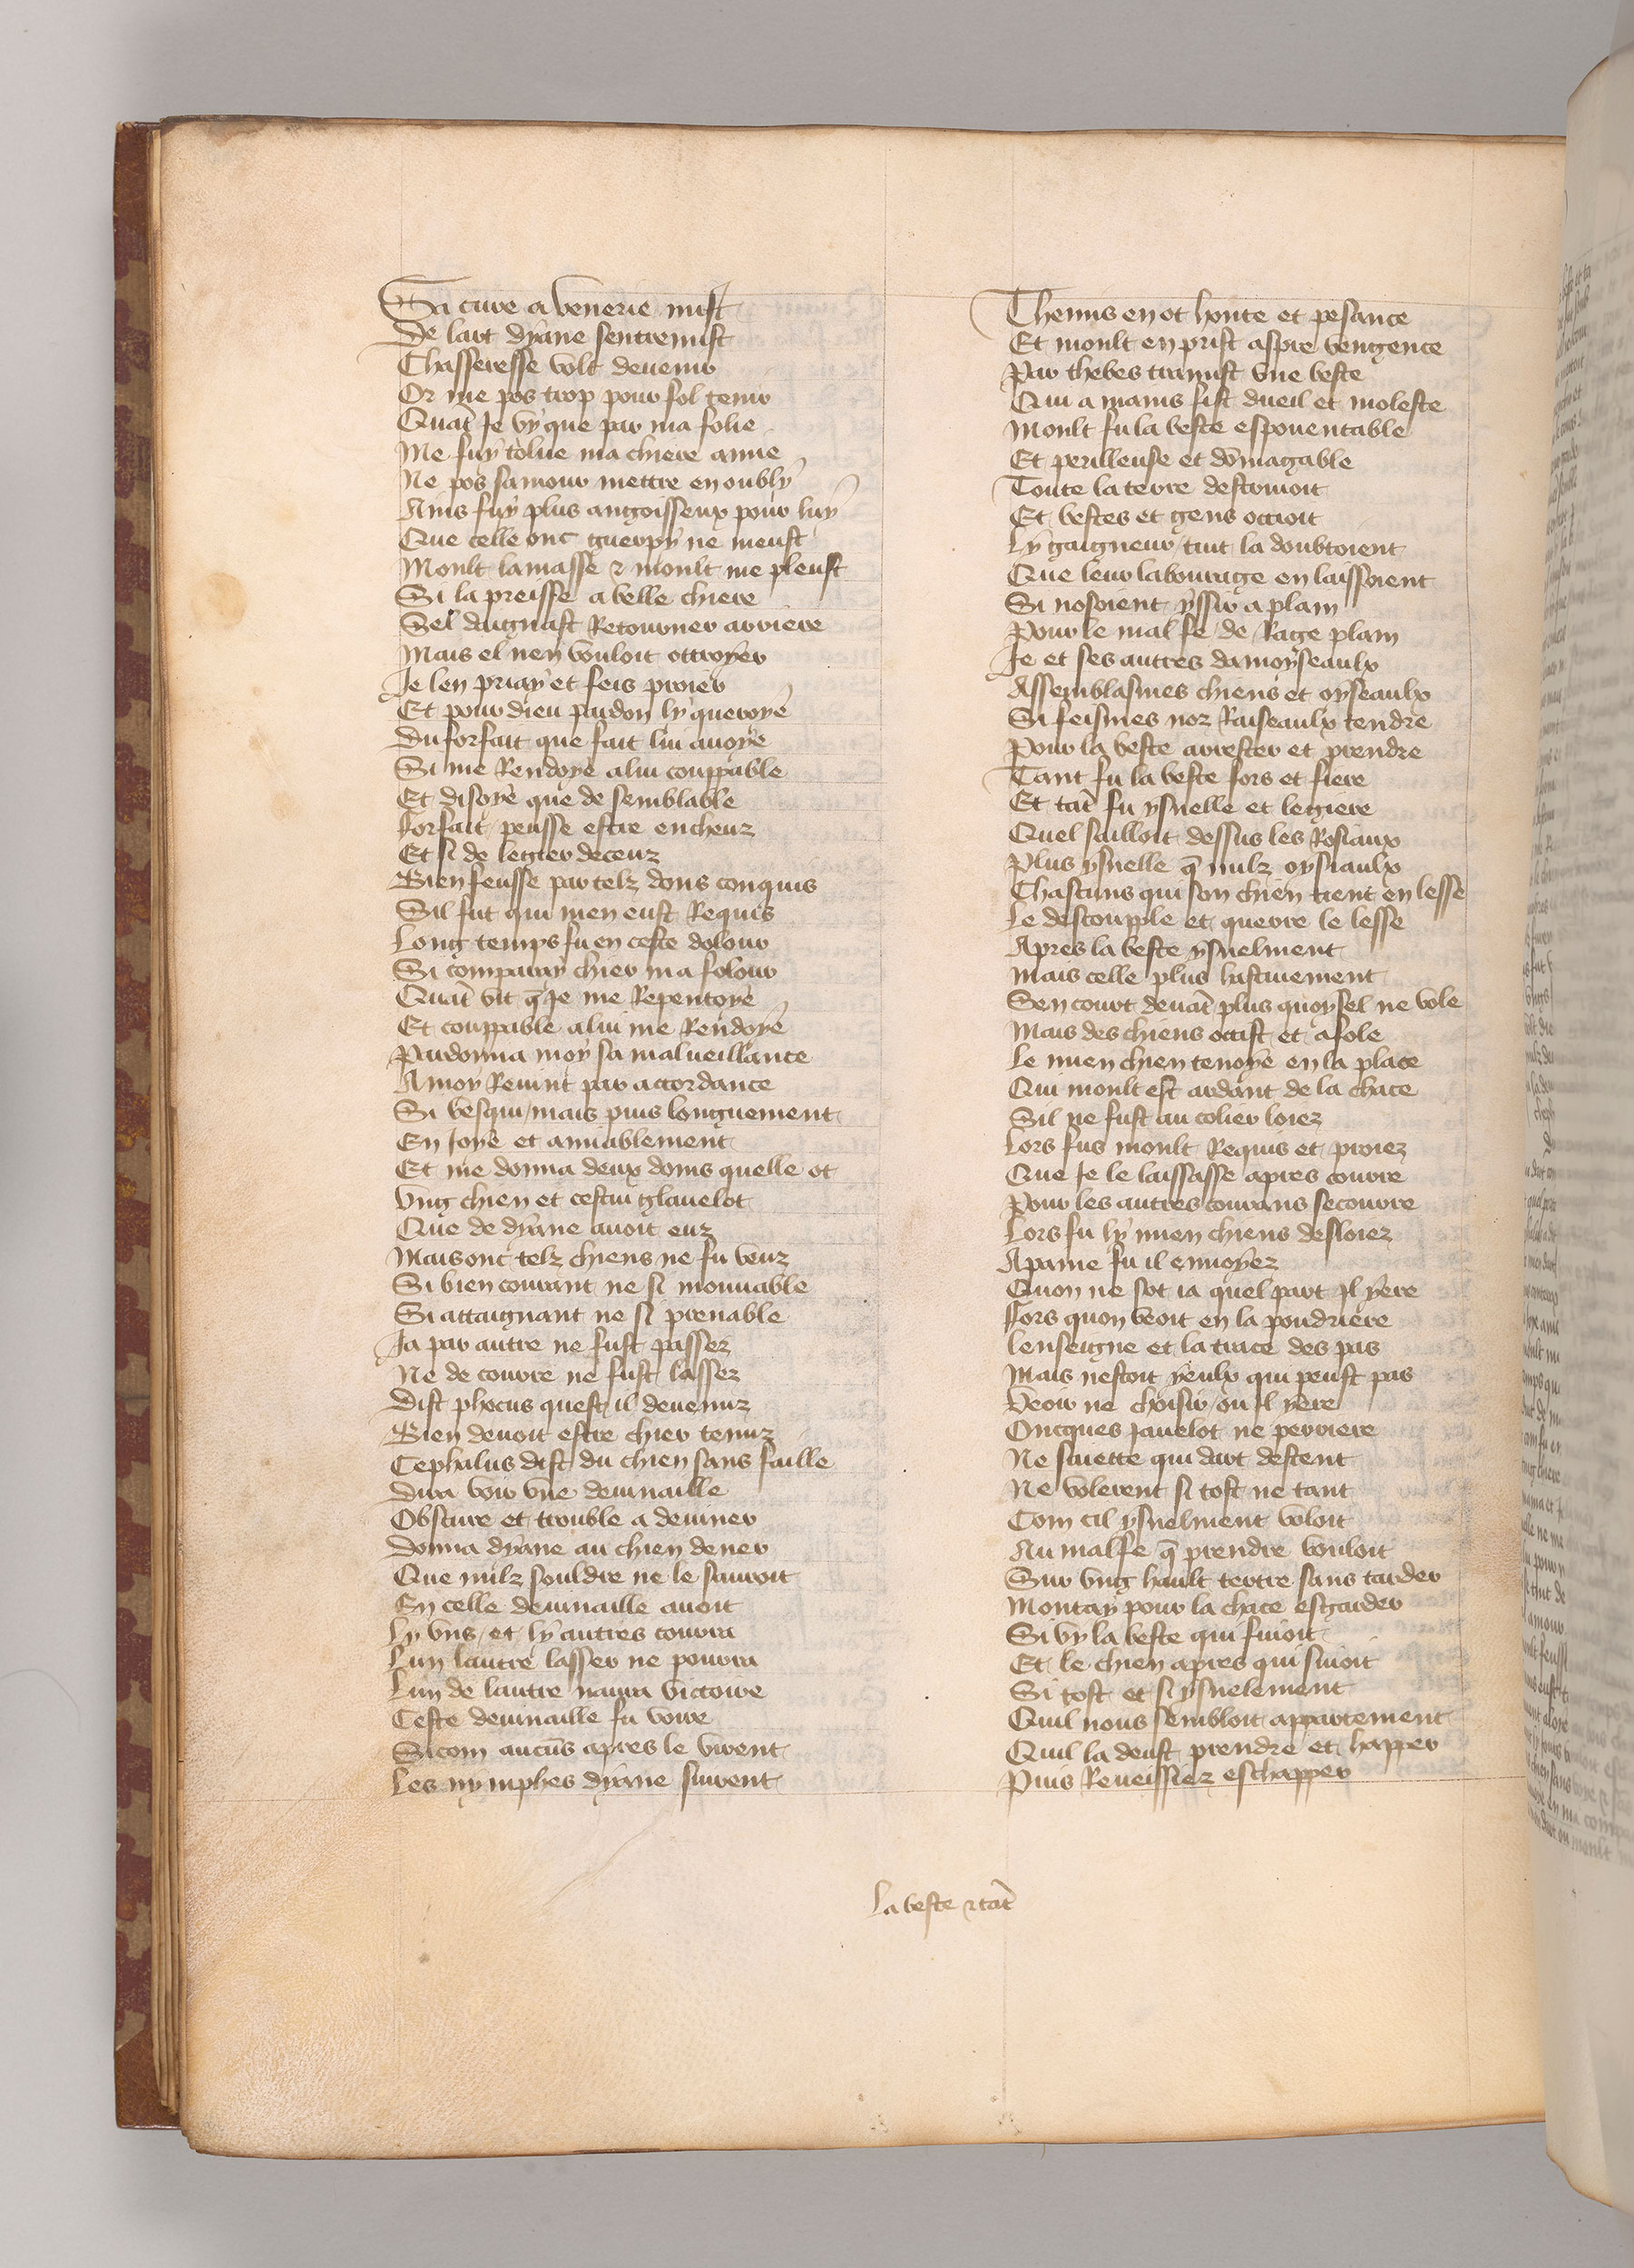 Sa cure a venerie mist
De lart dyane sentremist
Chasseresse volt devenir
Or me pos trop pour fol tenir
Quāt Je vy que par ma folie
Me fuy tolue ma chiere amie
Ne pos samour mettre en oubly
Ains fuy plus angoisseux pour luy
Que celle onc guerpy ne meust
Moult lamasse & moult me pleust
Si la preisse a belle chiere
Sel daignast Retourner arriere
Mais el nen vouloit ottroyer
Je len priay et feis proier
Et pour dieu pardon ly queroye
Du forfait que fait lui avoye
Si me Rendoye a lui couppable
Et disoye que de semblable
Forfait peusse estre encheuz
Et si de legier deceuz
Bien feusse par telz dons conquis
Sil fut qui men eust Requis
Long temps fu en ceste dolour
Si comparay chier ma folour
Quāt vit q̄ Je me Repentoye
Et couppable a lui me Rendoye
Pardonna moy sa malveillance
A moy Revint par accordance
Si vesqui mais puis longuement
En Joye et amiablement
Et me donna deux dons quelle ot
Ung chien et cestui glavelot
Que de dyane avoit euz
Mais onc telz chiens ne fu veuz
Si bien courant ne si mouvable
Si attaignant ne si prenable
Ja par autre ne fust passez
Ne de courre ne fust lassez
Dist phocus quest il devenuz
Bien devoit estre chier tenuz
Cephalus dist du chien sans faille
Dira voir une devinaille
Obscure et trouble a deviner
Donna dyane au chien dener
Que nulz souldre ne le sauroit
En celle devinaille avoit
Ly uns et ly autres courra
Lun lautre lasser ne pourra
Lun de lautre naura victoire
Ceste devinaille fu voire
Sicom aucūs apres le virent
Les nymphes dyane suirent
Themis en ot honte et pesance
Et moult en prist aspre vengence
Par thebes tramist une beste
Qui a mains fist dueil et moleste
Moult fu la beste espouentable
Et perilleuse et dōmagable
Toute la terre destruioit
Et bestes et gens occioit
Ly gaigneur tant la doubtoient
Que leur labourage en laissoient
Si nosoient yssir a plain
Pour le mal fe de Rage plain
Je et ses autres damoyseaulx
Assemblasmes chiens et oyseaulx
Si feismes noz Raiseaulx tendre
Pour la beste arrester et prendre
Tant fu la beste fors et fiere
Et tāt fu ysnelle et legiere
Quel sailloit dessus les Rosiaux
Plus ysnelle q̄ nulz oysiaulx
Chascuns qui son chien tient en lesse
Le descouple et querre le lesse
Apres la beste ysnelment
Mais celle plus hastivement
Sen court devāt plus quoysel ne vole
Mais des chiens occist et afole
Le mien chien tenoye en la place
Qui moult est ardant de la chace
Sil ne fust au colier loiez
Lors fus moult Requis et proiez
Que Je le laissasse apres courre
Pour les autres courans secourre
Lors fu ly mien chiens desloiez
A paine fu il envoyez
Quon ne sot ia quel part Il yere
Fors quon veoit en la poudriere
Lenseigne et la trace des pas
Mais nestoit yeulx qui peust pas
Veoir ne choisir ou Il yere
Oncques Javelot ne perriere
Ne saiette qui dart destent
Ne volerent si tost ne tant
Com cil ysnelment voloit
Au malfe q̄ prendre vouloit
Sur ung hault tertre sans tarder
Montay pour la chace esgarder
Si vy la beste qui fuioit
Et le chien apres qui suioit
Si tost et si ysnelement
Quil nous sembloit appartement
Quil la deust prendre et happer
Puis Reveissiez eschapper
La beste & tāt